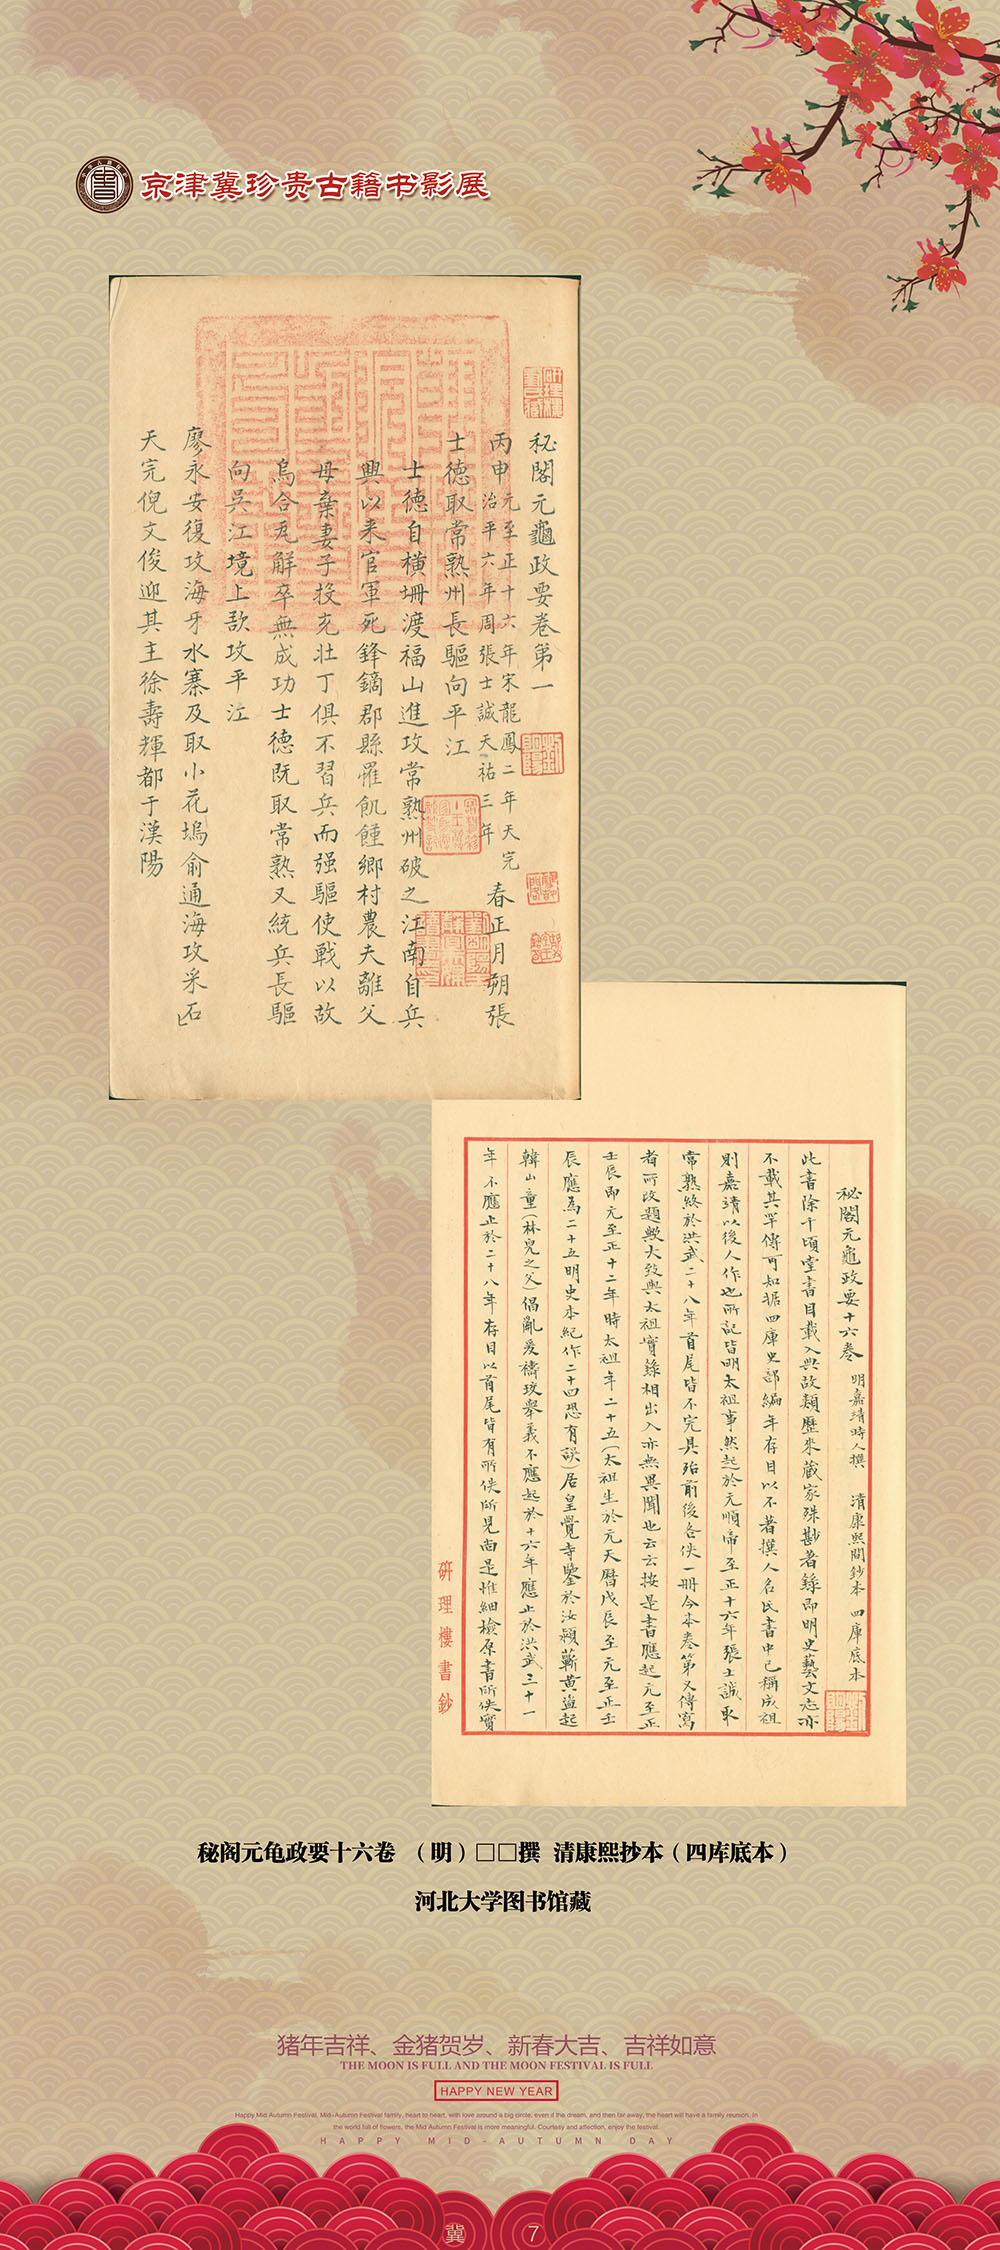 京津冀珍贵古籍书影展
秘閣元龜政要卷第一
丙申元至正十六年宋龍鳳二年天完
治平六年周張士誠天祐三年
春正月朔張
士德取常熟州長驅向平江
士德自橫塘渡福山進攻常熟州破之江南自兵
興以來官軍死鋒鏑郡縣罹飢饉鄉村農夫離父
母棄妻子投充壯丁俱不習兵而强驅使戰以故
烏合瓦解卒無成功士德既取常熟又統兵長驅
向吳江境上欲攻平江
廖永安復攻海牙水寨及取小花塢俞通海攻采石
天完倪文俊迎其主徐壽輝都于漢陽
秘閣元龜政要十六卷 明嘉靖時人撰 清康熙間鈔本 四庫底本
此書除千頃堂書目載入典故類歷來藏家殊尠著錄即明史藝文志亦
不載其罕傳可知據四庫史部編年存目以不著撰人名氏書中已稱成祖
則嘉靖以後人作也所記皆明太祖事然起於元順帝至正十六年張士誠取
常熟終於洪武二十八年首尾皆不完具殆前後各佚一冊今本卷第又傳寫
者所改題歟大致與太祖實錄相出入亦無異聞也云云按是書應起元至正
壬辰即元至正十二年時太祖年二十五(太祖生於元天曆戊辰至元至正壬
辰應為二十五明史本紀作二十四恐有誤)居皇覺寺鑒於汝潁蘄黃盜起
韓山童(林兒之父)倡亂爰禱玟舉義不應起於十六年應止於洪武三十一
年不應止於二十八年存目以首尾皆有所佚所見尚是惟細檢原書所佚實
研理樓書鈔
秘阁元龟政要十六卷 （明）□□撰 清康熙抄本（四库底本）
河北大学图书馆藏
猪年吉祥、金猪贺岁、新春大吉、吉祥如意
THE MOON IS FULL AND THE MOON FESTIVAL IS FULL
HAPPY NEW YEAR
Happy Mid Autumn Festival, Mid-Autumn Festival family, heart to heart, with love around a big circle, even if the dream, and then far away, the heart will have a family reunion. In
the world full of flowers, the Mid Autumn Festival is more meaningful. Courtesy and affection, enjoy the festival.
HAPPY MID-AUTUMN DAY
冀 7